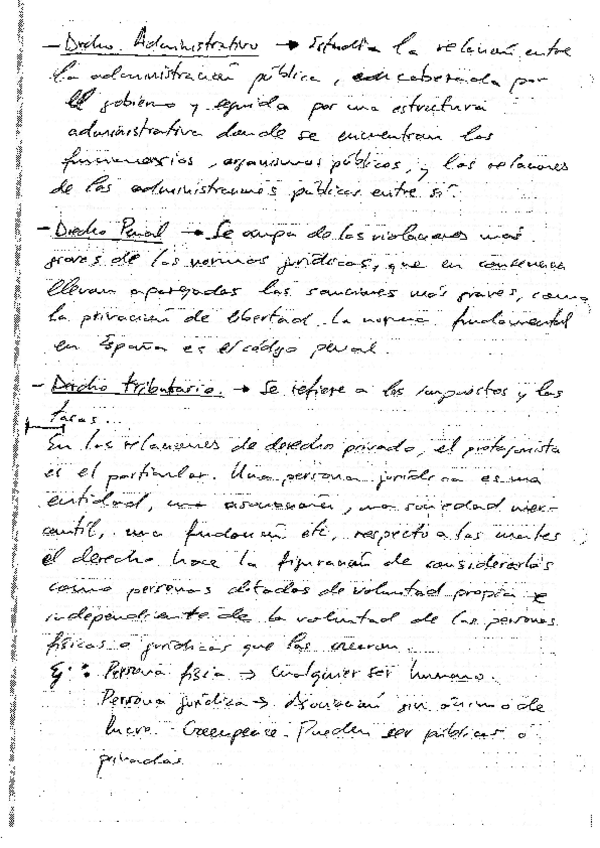 - Drcho. Administrativo → Estudia la relación entre
la administración pública, encabezada por
el gobierno y seguida por una estructura
administrativa donde se encuentran los
funcionarios, organismos públicos, y las relaciones
de las administraciones públicas entre sí.
- Drecho Penal → Se ocupa de las violaciones más
graves de las normas jurídicas, que en consecuencia
llevan aparejadas las sanciones más graves, como
la privación de libertad. La norma fundamental
en España es el código penal.
- Derecho tributario. → Se refiere a los impuestos y las
tasas.
En las relaciones de derecho privado, el protagonista
es el particular. Una persona jurídica es una
entidad, una asociación, una sociedad mer-
cantil, una fundación etc, respecto a las cuales
el derecho hace la figuración de considerarlas
como personas dotadas de voluntad propia e
independiente de la voluntad de las personas
físicas o jurídicas que las crearon.
Ej: Persona física → cualquier ser humano.
Persona jurídica → Asociación sin ánimo de
lucro. Greenpeace. Pueden ser públicas o
privadas.